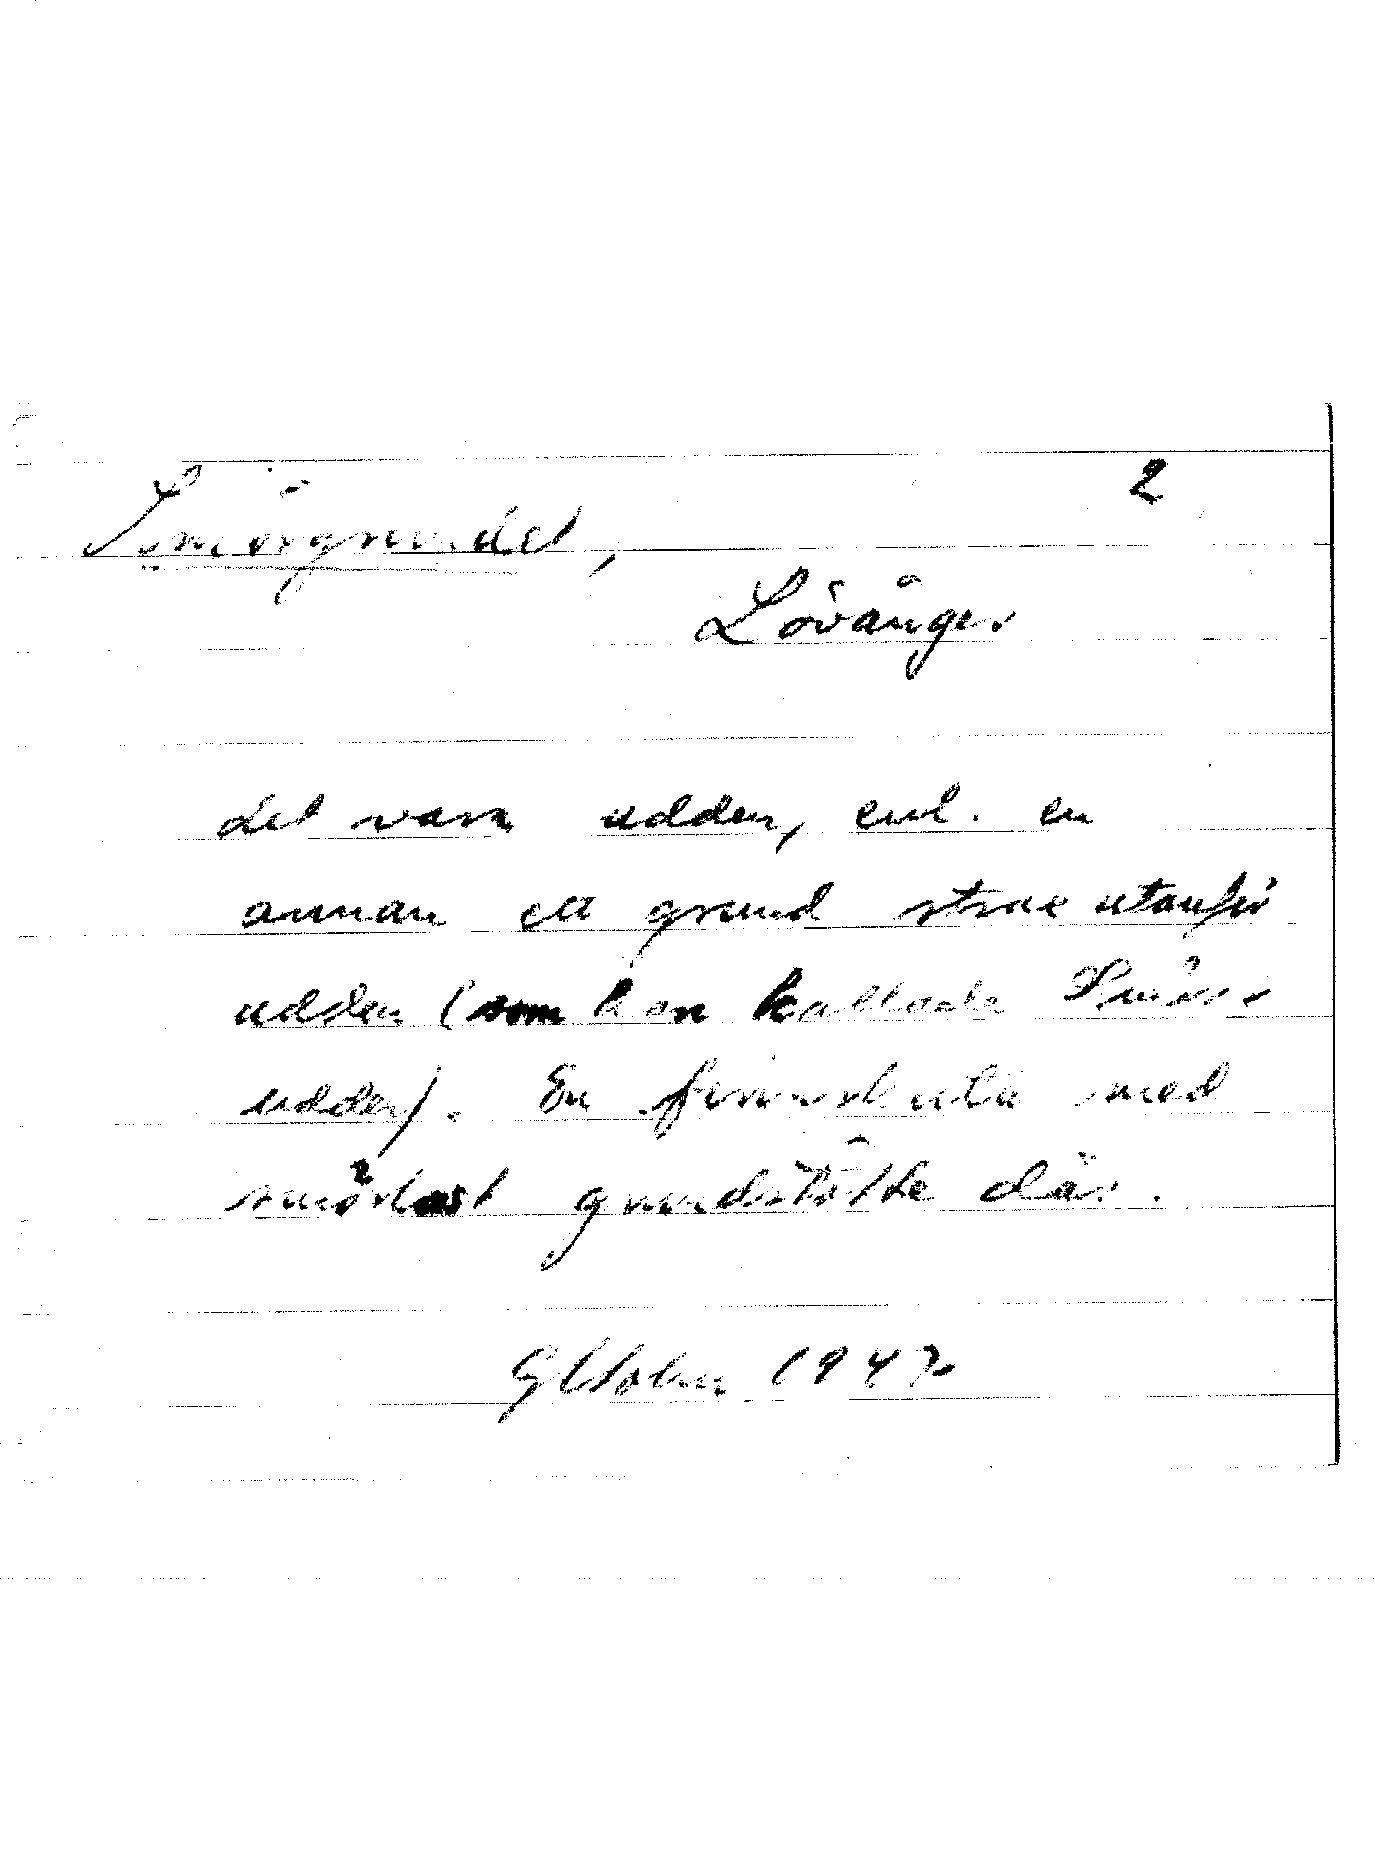 Smörgrundet, 2
Lövånger
det vara udden, enl. en
annan ett grund strax utanför
udden (som han kallade Smörs-
udden). En finnskuta med
smörlast grundstötte där.
GHolm 1947